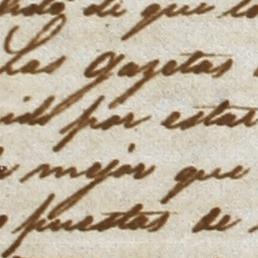 de que
Las gazetas
por estar
mejor que
puestas de